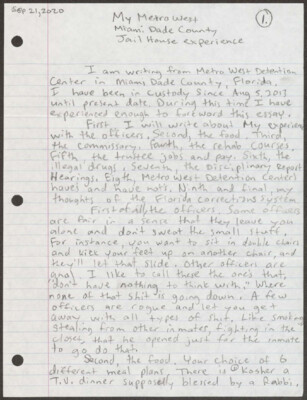 SEP 21, 2020
My Metro West
Miami Dade County
Jail House experience
1.
I am writing from Metro West Detention
Center in Miami Dade County, Florida.
I have been in custody since Aug 5, 2013
until present date. During this time I have
experienced enough to forward this essay.
First I will write about My experience
with the officers, Second, the food. Third
the commissary. Fourth, the rehab courses.
Fifth, the trustee jobs and pay. Sixth, the
illegal drugs. Seventh, the Disciplinary Report
Hearings. Eight, Metro West Detention Center
haves and have nots. Ninth and final, my
thoughts of the Florida corrections system.
First of all the officers. Some officers
are fair in a sense that they leave you
alone and don't sweat the small stuff.
For instance, you want to sit in double chairs
and kick your feet up on another chair, and
they'll let that slide. Other officers are
anal. I like to call these the ones that,
"don't have nothing to think with," where
none of that shit is going down. A few
officers are rogue and let you get
away with all types of shit. Like smoking
stealing from other inmates, fighting in the
closet, that he opened just for the inmate
to go do that.
Second, the food. Your choice of 6
different meal plans. There is Kosher a
T.V. dinner supposedly blessed by a Rabbi.